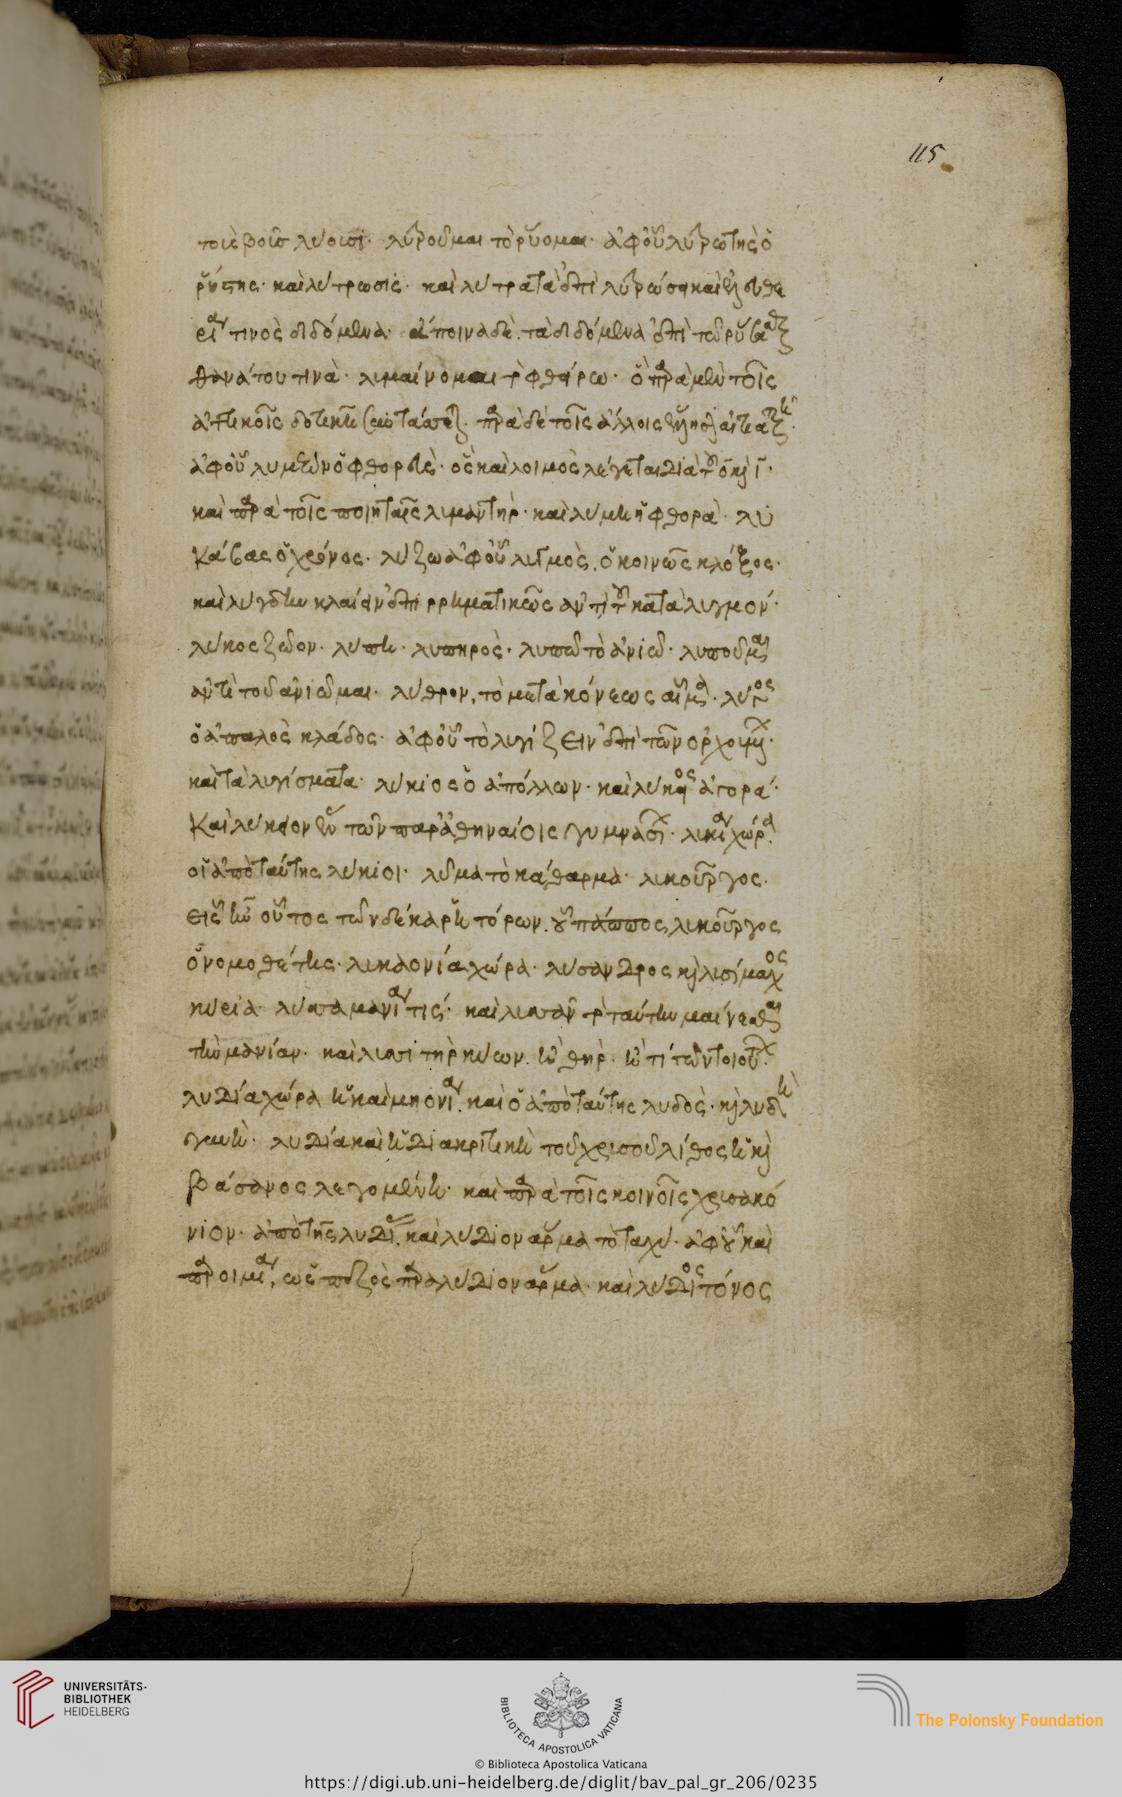 115
ποιὲ βοῦς λύουσι· λυτροῦμαι τὸ ῥύομαι· ἀφ' οὗ λυτρωτὴς ὁ
ῥύστης· καὶ λύτρωσις· καὶ λύτρα τὰ ἐπὶ λυτρώσει καὶ ἐλευθε
ρίαν τινὸς διδόμενα· ἄποινα δὲ τὰ διδόμενα ἐπὶ τῷ ῥύσασθαι
θανάτου τινὰ· λιμαίνομαι τὸ φθείρω· ὃ παρὰ μὲν τοῖς
ἀττικοῖς δοτικῇ συντάσσεται· παρὰ δὲ τοῖς ἄλλοις ἕλλησιν αἰτιατικῇ·
ἀφ' οὗ λυμεὼν ὁ φθορεὺς· ὃς καὶ λοιμὸς λέγεται διὰ τοῦ ο καὶ ι·
καὶ παρὰ τοῖς ποιηταῖς λιμαντήρ· καὶ λύμη ἡ φθορὰ· λυ
κάβας ὁ χρόνος· λύζω ἀφ' οὗ λυγμὸς· ὁ κοινῶς κλόξος·
καὶ λύγδην κλαίειν ἐπιρρηματικῶς ἀντὶ τοῦ κατὰ λιγμόν·
λύπη· λυπηρὸς· λυπῶ τὸ ἀνιῶ· λυποῦμαι
ἀντὶ τοῦ ἀνιῶμαι· λύθρον, τὸ μετὰ κόνεως αἷμα· λύγος
ὁ ἁπαλὸς κλάδος· ἀφ' οὗ τὸ λυγίζειν ἐπὶ τῶν ὀρχουμένων·
καὶ τὰ λυγίσματα· λύκιος ὁ ἀπόλλων· καὶ λύκειος ἀγορά·
καὶ λύκειον ἓν τῶν παρ' ἀθηναίοις γυμνασίων· λικία χώρα·
οἱ ἀπὸ ταύτης λύκιοι· λῦμα τὸ κάθαρμα· λικοῦργος·
εἷς ἦν οὗτος τῶν δέκα ῥητόρων· οὗ πάππος λικοῦργος
ὁ νομοθέτης· λικαονία χώρα· λύσανδρος καὶ λισίμαχος
κύρια· λύττα μανία τις· καὶ λιττᾶν τὸ ταύτην μαίνεσθαι
τὴν μανίαν· καὶ λιττητὴρ κύων· ἢ θὴρ· ἤ τι τῶν τοιούτων·
λυδία χώρα ἡ καὶ μηονία· καὶ ὁ ἀπὸ ταύτης λυδὸς· καὶ λυδὴ
γυνὴ· λυδία καὶ ἡ διακριτικὴ τοῦ χρυσοῦ λίθος ἡ καὶ
βάσανος λεγομένη· καὶ παρὰ τοῖς κοινοῖς χρυσακό
νιον· ἀπὸ τῆς λυδίας· καὶ λύδιον ἅρμα τὸ ταχύ· ἀφ' οὗ καὶ
παροιμία, ὡς πεζὸς παρὰ λύδιον ἅρμα· καὶ λύδιος τόνος
UNIVERSITÄTS-
BIBLIOTHEK
HEIDELBERG
BIBLIOTECA APOSTOLICA VATICANA
The Polonsky Foundation
© Biblioteca Apostolica Vaticana
https://digi.ub.uni-heidelberg.de/diglit/bav_pal_gr_206/0235